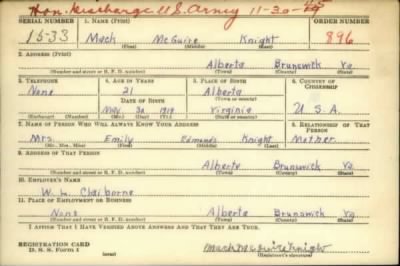 Hon. Discharge U S. Army 11-30-45
SERIAL NUMBER 1. NAME (Print) ORDER NUMBER
15-33 Mack McGuire Knight 896
(First) (Middle) (Last)
2. ADDRESS (Print)
Alberta Brunswick Va
(Number and street or R. F. D. number) (Town) (County) (State)
3. TELEPHONE 4. AGE IN YEARS 5. PLACE OF BIRTH 6. COUNTRY OF CITIZENSHIP
None 21 Alberta
(Town or county)
DATE OF BIRTH
May 30 1919 Virginia U. S. A.
(Exchange) (Number) (Mo.) (Day) (Yr.) (State or country)
7. NAME OF PERSON WHO WILL ALWAYS KNOW YOUR ADDRESS 8. RELATIONSHIP OF THAT PERSON
Mrs. Emily Edmonds Knight Mother
(Mr., Mrs., Miss) (First) (Middle) (Last)
9. ADDRESS OF THAT PERSON
Alberta Brunswick Va
(Number and street or R. F. D. number) (Town) (County) (State)
10. EMPLOYER'S NAME
W. L. Claiborne
11. PLACE OF EMPLOYMENT OR BUSINESS
None Alberta Brunswick Va
(Number and street or R. F. D. number) (Town) (County) (State)
I AFFIRM THAT I HAVE VERIFIED ABOVE ANSWERS AND THAT THEY ARE TRUE.
REGISTRATION CARD
D. S. S. Form 1 Mack McGuire Knight
(over) (Registrant's signature)